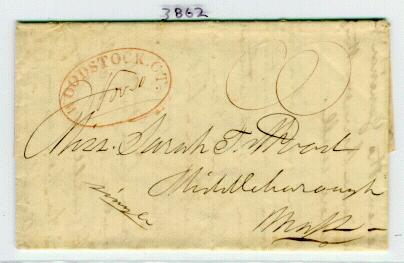 3862
WOODSTOCK.CT.
Miss. Sarah T. Wood
Middleborough
Mass
single